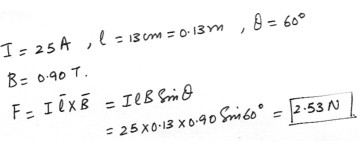 I = 25A , l = 13cm = 0.13m , θ = 60°
B = 0.90 T.
F = I l̄ x B̄ = IlB Sinθ
= 25x0.13x0.90 Sin60° = 2.53 N